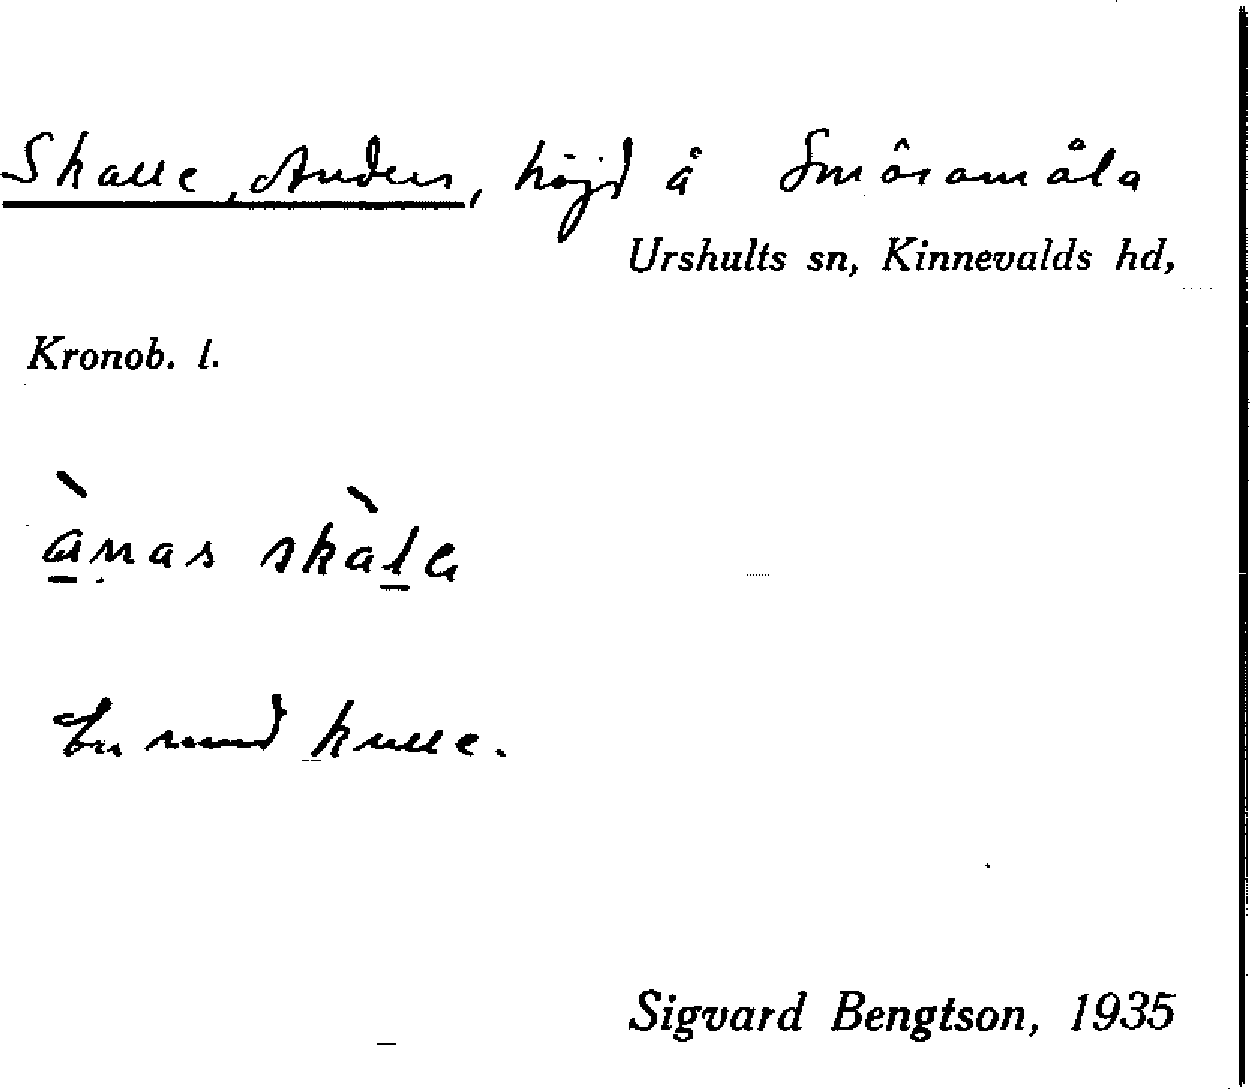 Skalle, Anders, höjd å Smôramåla
Urshults sn, Kinnevalds hd,
Kronob. l.
ànas skàla
En rund kulle.
Sigvard Bengtson, 1935